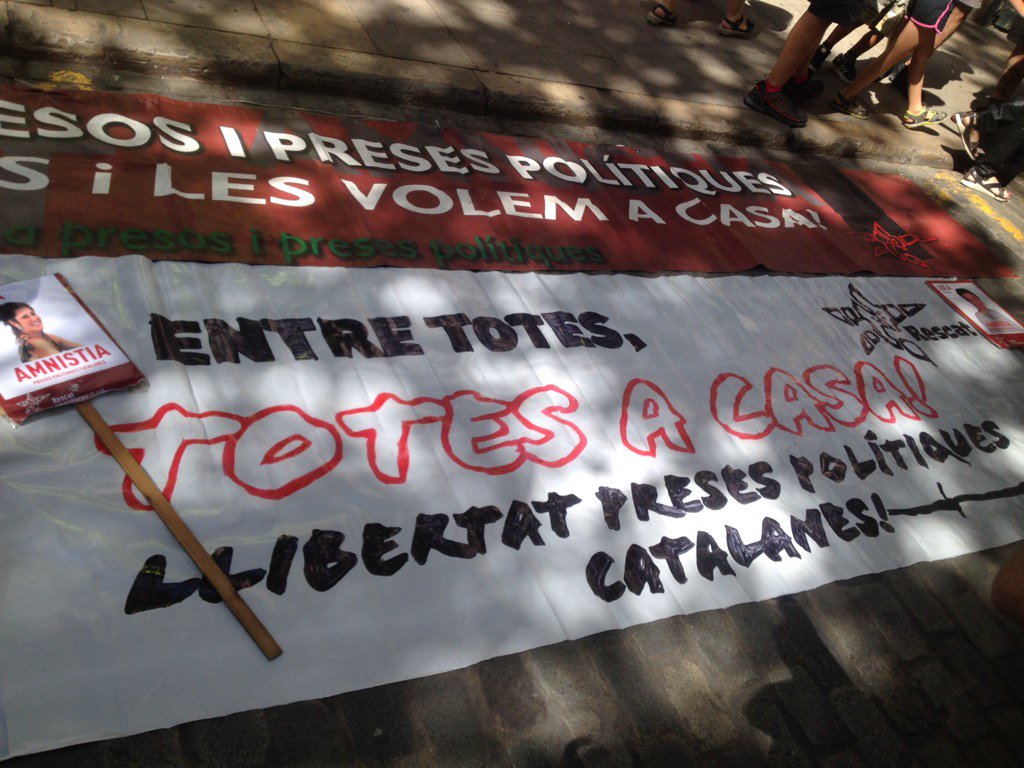 ESOS I PRESES POLÍTIQUES
S i LES VOLEM A CASA!
a presos i preses polítiques
AMNISTIA
PRESES POLÍTIQUES CATALANES
Rescat
ENTRE TOTES,
Rescat
TOTES A CASA!
LLIBERTAT PRESES POLÍTIQUES
CATALANES!